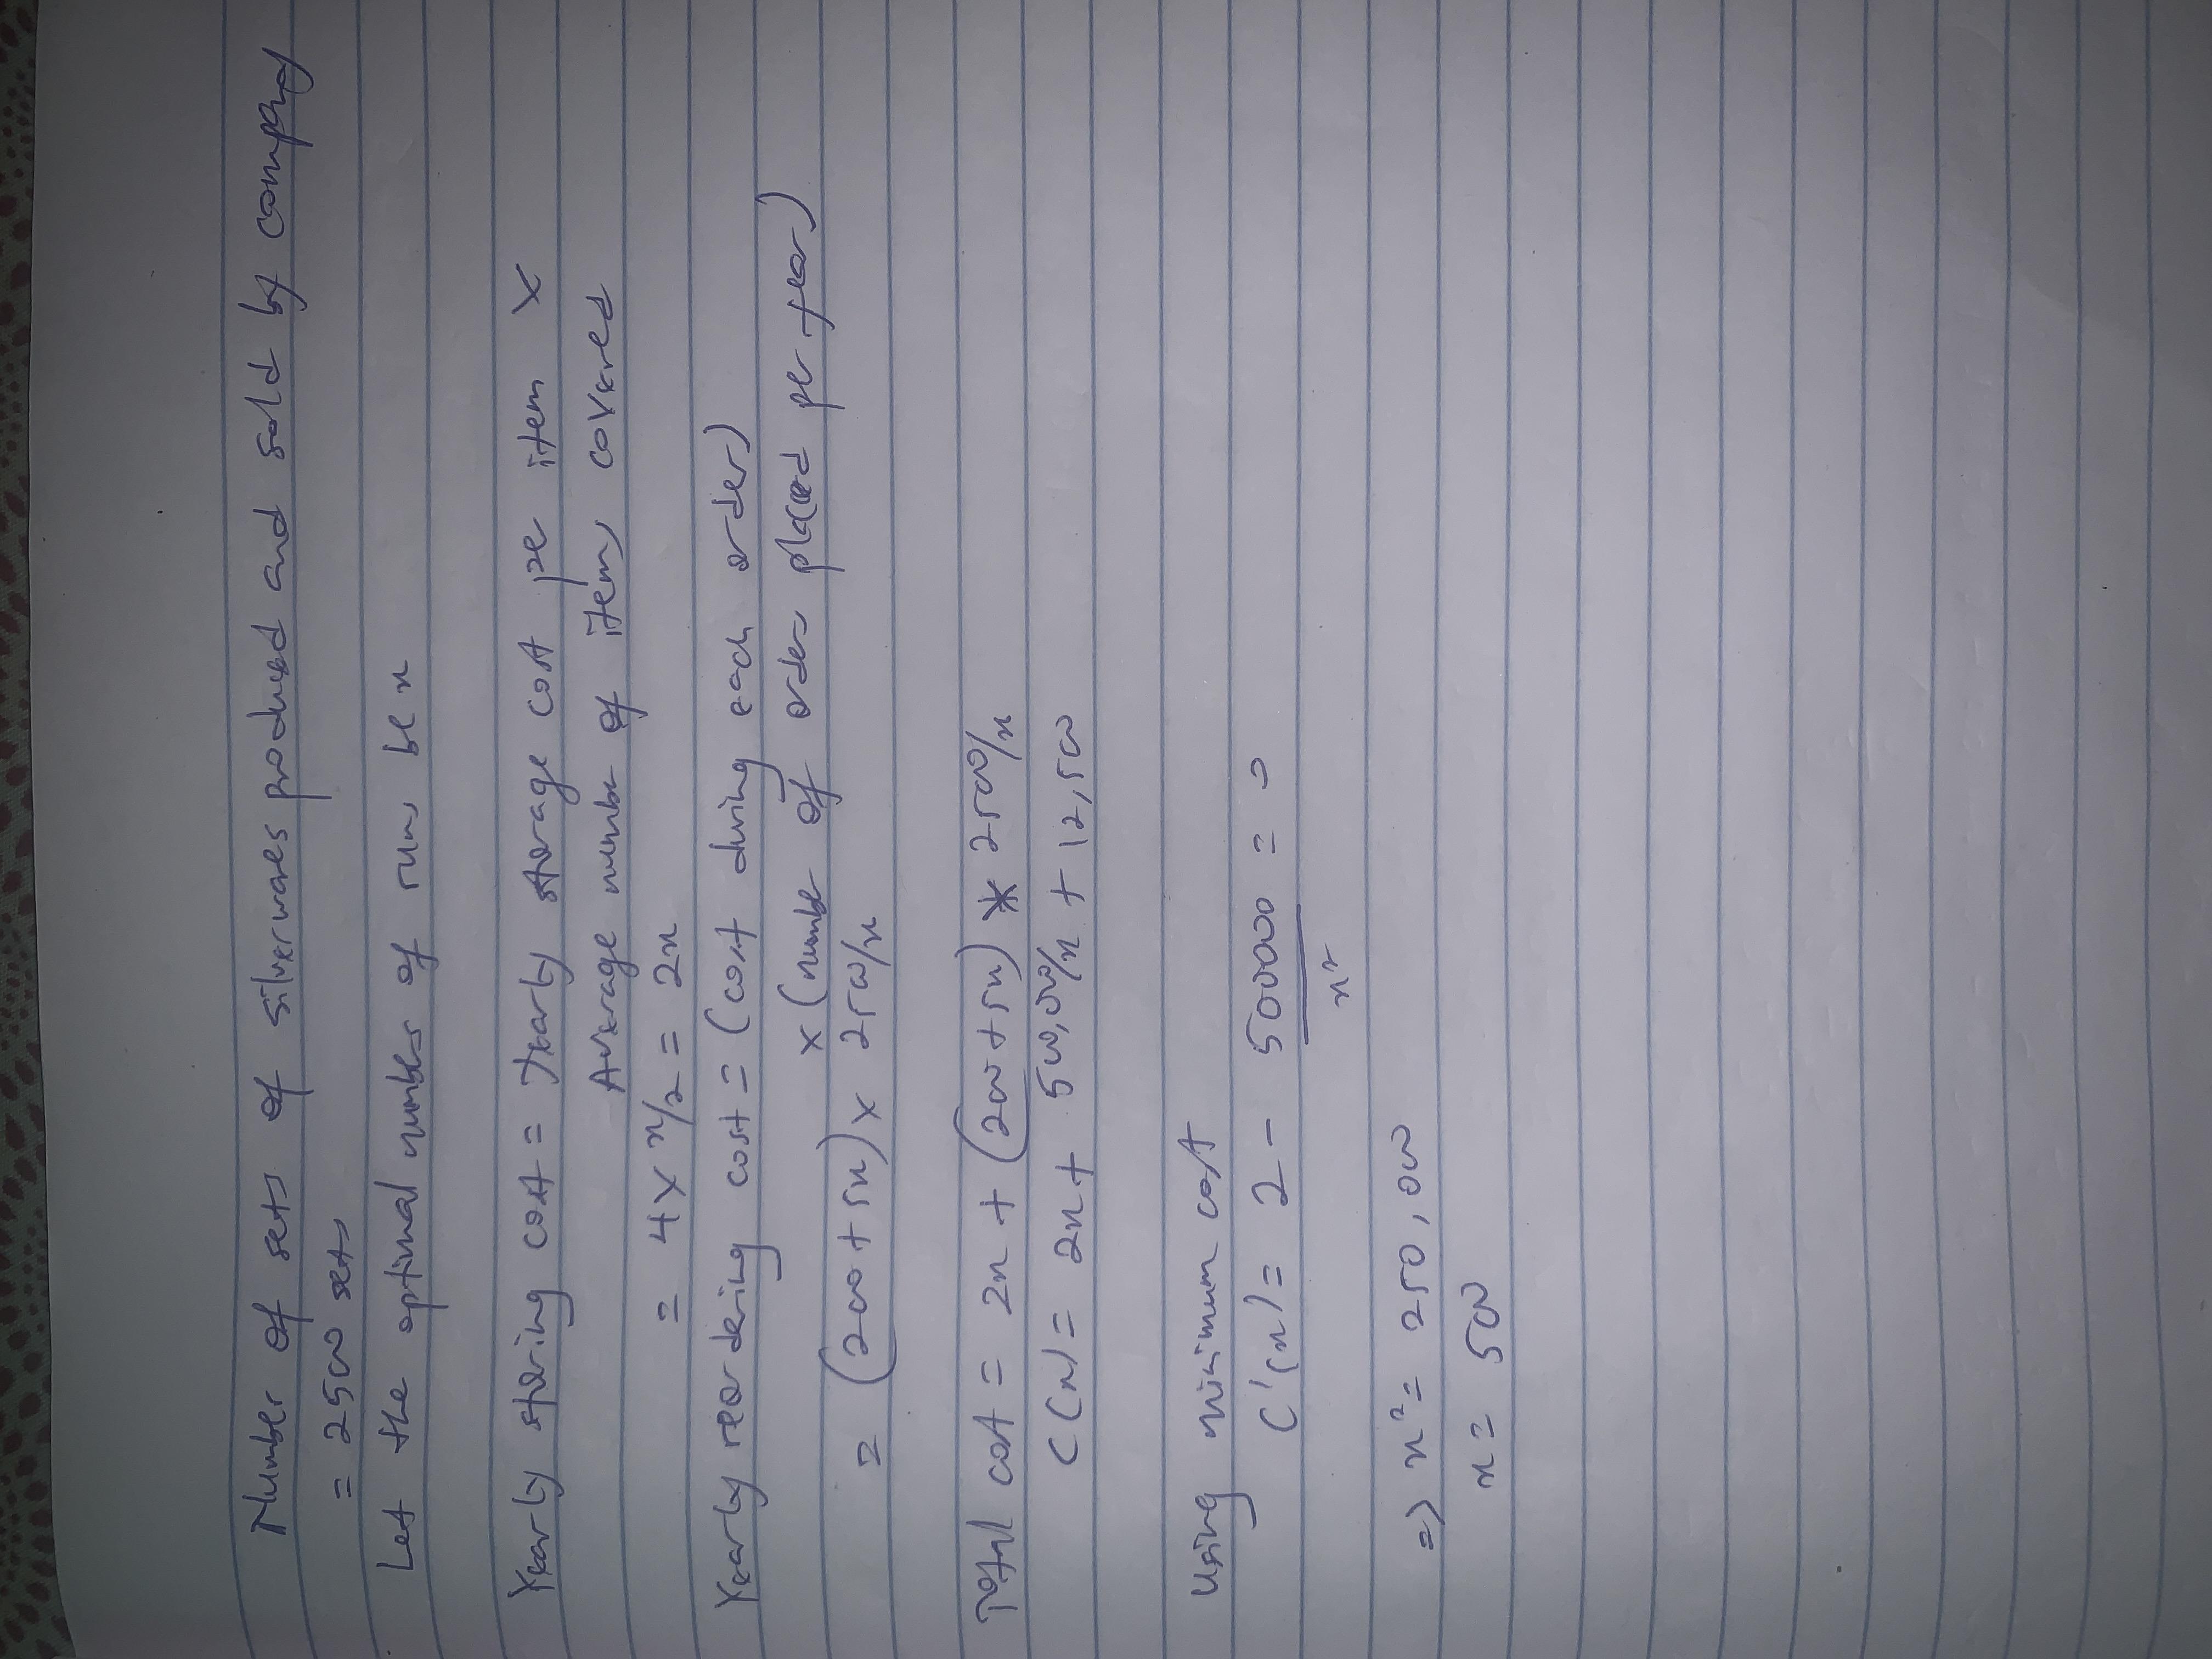 Number of sets of silverwares produced and sold by company
= 2500 sets
Let the optimal numbers of runs be x
Yearly storing cost = Yearly storage cost per item X
Average number of items covered
= 4 x x/2 = 2x
Yearly reordering cost = (cost during each order)
x (number of orders placed per year)
= (200 + 5x) x 2500/x
Total cost = 2x + (200 + 5x) * 2500/x
C(x) = 2x + 500,000/x + 12,500
Using minimum cost
C'(x) = 2 - 500000/x² = 0
=> x² = 250,000
x = 500